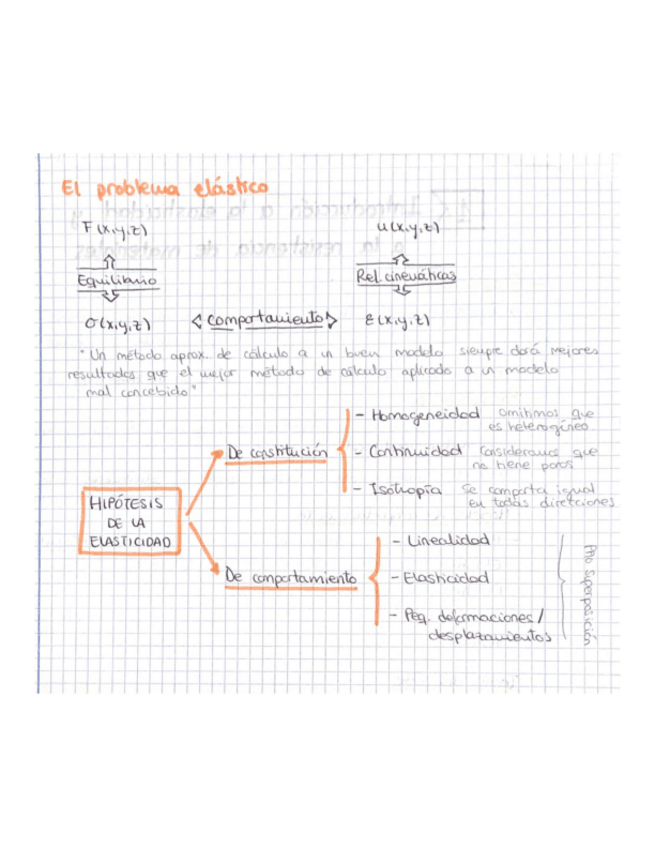 El problema elástico
F(x,y,z) u(x,y,z)
Equilibrio Rel. cinemáticas
σ(x,y,z) <comportamiento> ε(x,y,z)
"Un método aprox. de cálculo a un buen modelo siempre dará mejores
resultados que el mejor método de cálculo aplicado a un modelo
mal concebido"
HIPÓTESIS
DE LA
ELASTICIDAD
De constitución
- Homogeneidad omitimos que
es heterogéneo
- Continuidad Consideramos que
no tiene poros
- Isotropía Se comporta igual
en todas direcciones
De comportamiento
- Linealidad
- Elasticidad
- Peq. deformaciones/
desplazamientos
Pño Superposición